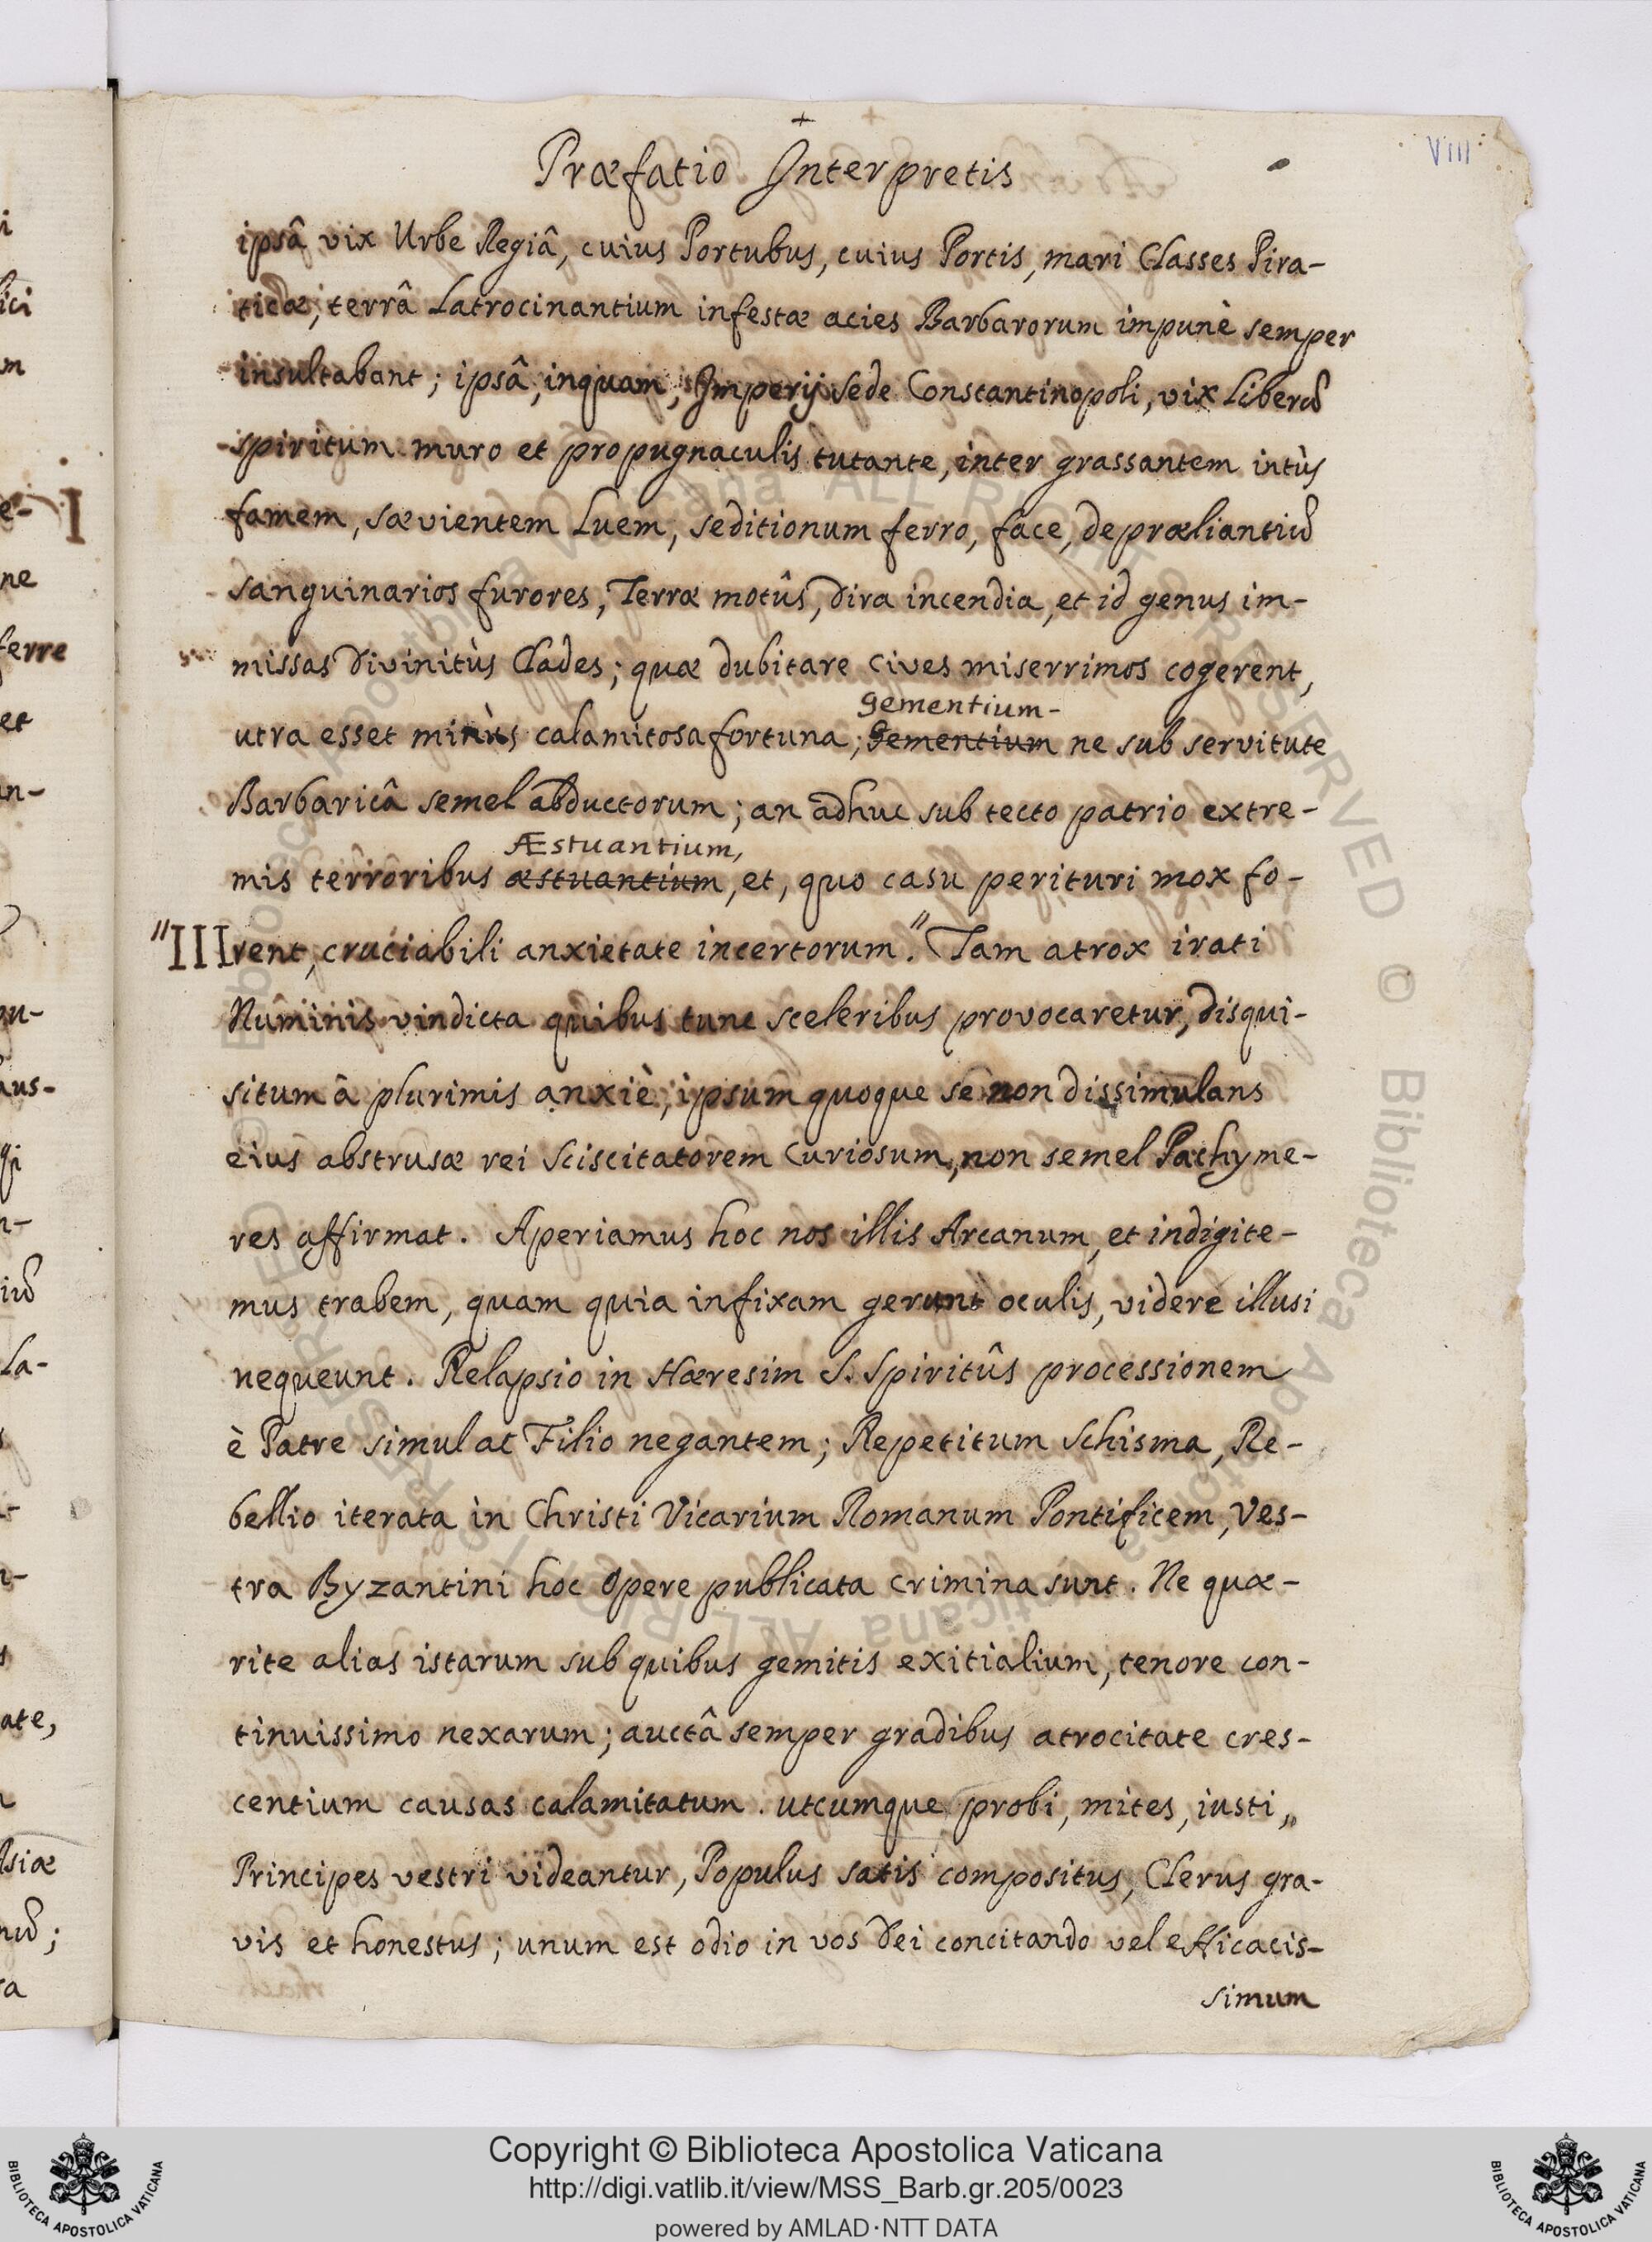 VIII
Præfatio Interpretis
ipsâ vix Urbe Regiâ, cuius Portubus, cuius Portis, mari Classes Pira-
ticæ, terrâ Latrocinantium infestæ acies Barbarorum impunè semper
insultabant; ipsâ, inquam, Imperij Sede Constantinopoli, vix Liberũ
spiritum muro et propugnaculis tutante, inter grassantem intùs
famem, sævientem Luem, seditionum ferro, face, depræliantiũ
sanguinarios furores, Terræ motûs, dira incendia, et id genus im-
missas divinitùs Clades; quæ dubitare Cives miserrimos cogerent,
gementium-
utra esset minùs calamitosa fortuna; gementium ne sub servitute
Barbaricâ semel abductorum; an adhuc sub tecto patrio extre-
Æstuantium,
mis terroribus æstuantium, et, quo casu perituri mox fo-
"III rent, cruciabili anxietate incertorum." Tam atrox irati
Numinis vindicta quibus tunc sceleribus provocaretur, disqui-
situm â plurimis anxiè, ipsum quoque se non dissimulans
eius abstrusæ rei Sciscitatorem Curiosum, non semel Pachyme-
res affirmat. Aperiamus hoc nos illis Arcanum, et indigite-
mus trabem, quam quia infixam gerunt oculis, videre illusi
nequeunt. Relapsio in Hæresim S. Spiritûs processionem
è Patre simul ac Filio negantem; Repetitum Schisma, Re-
bellio iterata in Christi Vicarium Romanum Pontificem, Ves-
tra Byzantini hoc Opere publicata crimina sunt. Ne quæ-
rite alias istarum sub quibus gemitis exitialium, tenore con-
tinuissimo nexarum; auctâ semper gradibus atrocitate cres-
centium causas calamitatum. utcumque probi, mites, iusti,
Principes vestri videantur, Populus satis compositus, Clerus gra-
vis et honestus; unum est odio in vos Dei concitando vel efficacis-
simum
Copyright © Biblioteca Apostolica Vaticana
http://digi.vatlib.it/view/MSS_Barb.gr.205/0023
powered by AMLAD·NTT DATA